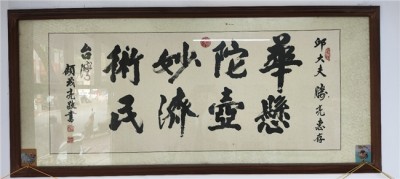 邱大夫 勝亮惠存
華懸
陀壺
妙濟
術民
台灣
顏
亮敬書